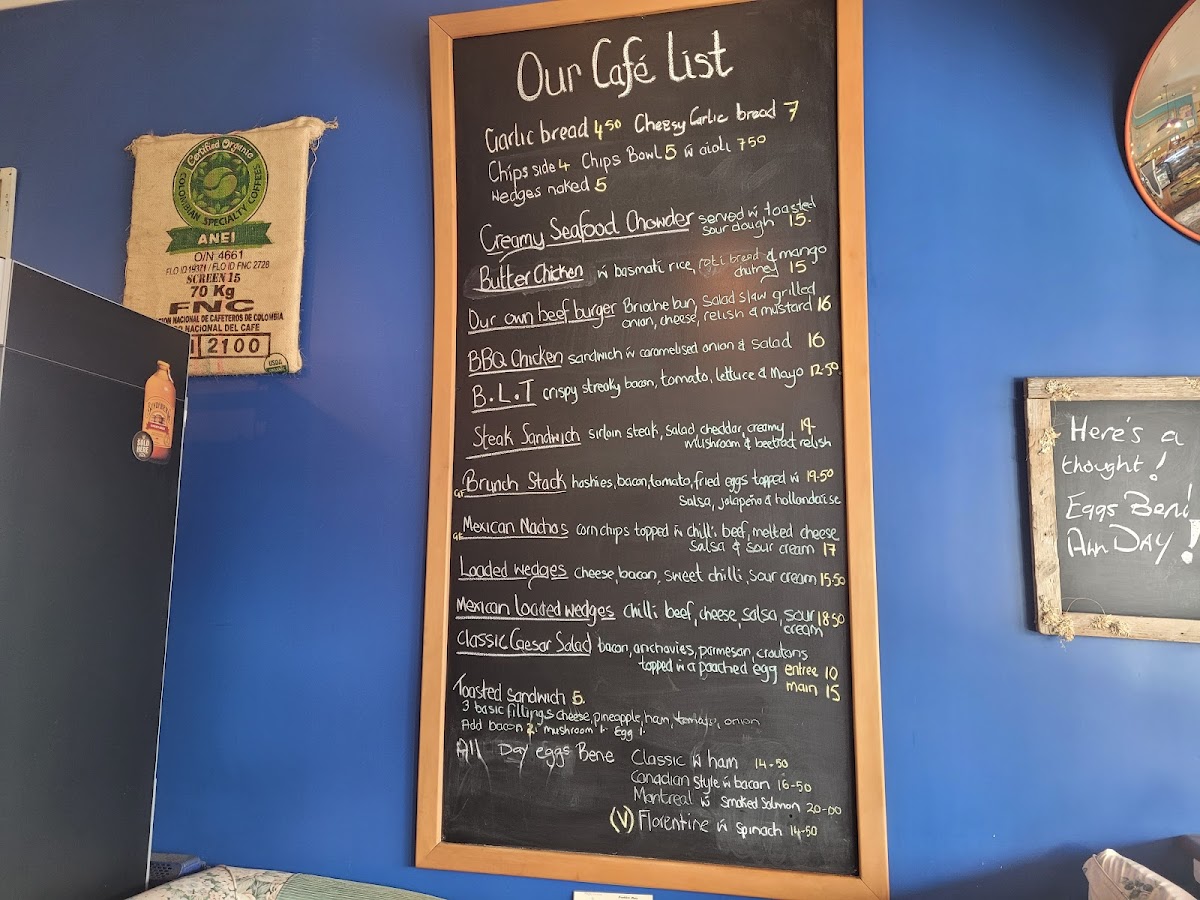 Our Café List
Garlic bread 4.50 Cheesy Garlic bread 7
Chips side 4 Chips Bowl 5 w aioli 7.50
Wedges naked 5
Creamy Seafood Chowder served w toasted
sour dough 15.
Butter Chicken w basmati rice, roti bread & mango
chutney 15
Our own beef burger Brioche bun, Salad slaw grilled
onion, cheese, relish & mustard 16
BBQ Chicken sandwich w caramelised onion & salad 16
B.L.T crispy streaky bacon, tomato, lettuce & Mayo 12.50
Steak Sandwich sirloin steak, salad, cheddar, creamy
mushroom & beetroot relish
GF Brunch Stack hashies, bacon, tomato, fried eggs topped w 19.50
Salsa, jalapeño & hollandaise
GF Mexican Nachos corn chips topped w chilli beef, melted cheese
Salsa & sour cream 17
Loaded wedges cheese, bacon, sweet chilli, sour cream 15.50
Mexican loaded wedges chilli beef, cheese, salsa, sour 18.50
cream
Classic Caesar Salad bacon, anchovies, parmesan, croutons
topped w a poached egg entree 10
main 15
Toasted sandwich 5.
3 basic fillings cheese, pineapple, ham, tomato, onion
Add bacon 2. mushroom 1. Egg 1.
All Day eggs Bene Classic w ham 14-50
Canadian style w bacon 16-50
Montreal w Smoked Salmon 20-00
(V) Florentine w spinach 14-50
Certified Organic
COLOMBIAN SPECIALTY COFFEES
ANEI
O/N 4661
FLO ID 18371 / FLO ID FNC 2728
SCREEN 15
70 Kg
FNC
NACIONAL DE CAFETEROS DE COLOMBIA
NACIONAL DEL CAFE
2100
USDA
SOLD
HERE
Here's a
thought!
Eggs Ben!
All DAY!